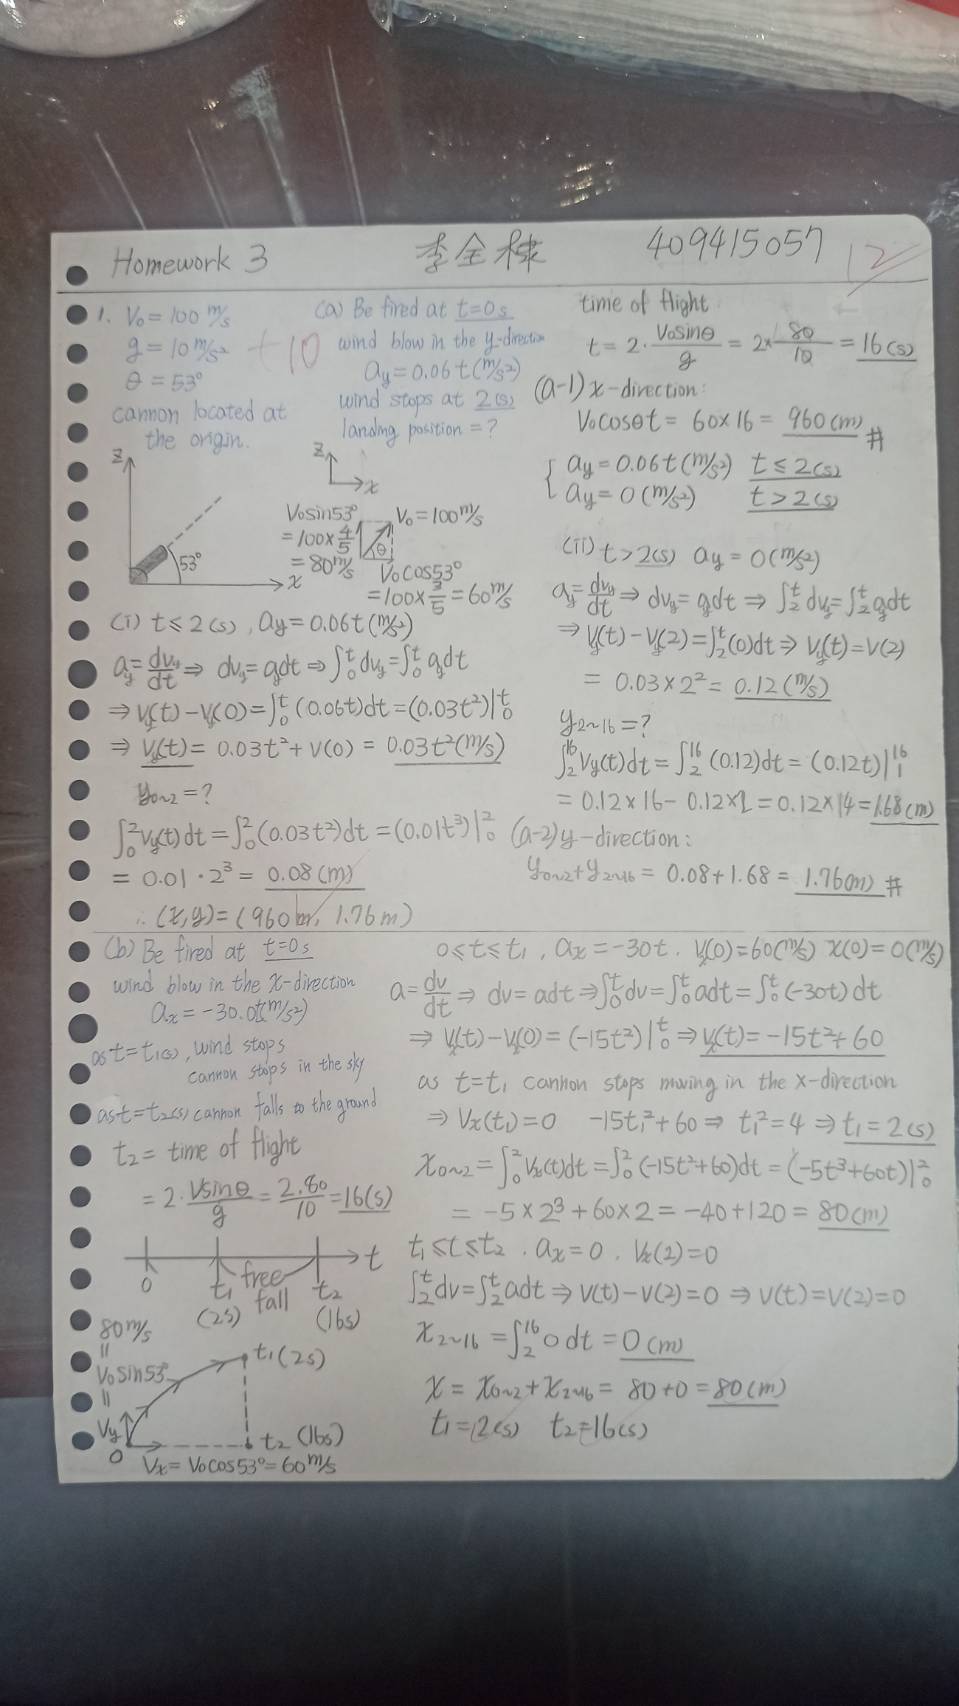 Homework 3 李全棟 409415057 12
1. V₀ = 100 m/s
g = 10 m/s² +10
θ = 53°
cannon located at
the origin.
z
53°
x
(a) Be fired at t=0s
wind blow in the y-direction
ay = 0.06t (m/s²)
wind stops at 2(s)
landing position = ?
z
x
V₀sin53°
= 100 × 4/5
= 80 m/s
V₀ = 100 m/s
θ
V₀cos53°
= 100 × 3/5 = 60 m/s
(i) t ≤ 2(s), ay = 0.06t (m/s²)
ay = dvy/dt ⇒ dvy = aydt ⇒ ∫₀ᵗ dvy = ∫₀ᵗ aydt
⇒ Vy(t) - Vy(0) = ∫₀ᵗ (0.06t)dt = (0.03t²)|₀ᵗ
⇒ Vy(t) = 0.03t² + V(0) = 0.03t² (m/s)
y₀~₂ = ?
∫₀² Vy(t)dt = ∫₀² (0.03t²)dt = (0.01t³)|₀²
= 0.01 · 2³ = 0.08 (m)
∴ (x,y) = (960 m, 1.76 m)
time of flight
t = 2 · V₀sinθ/g = 2 × 80/10 = 16(s)
(a-1) x-direction:
V₀cosθt = 60 × 16 = 960(m) #
{ ay = 0.06t (m/s²) t ≤ 2(s)
ay = 0 (m/s²) t > 2(s)
(ii) t > 2(s) ay = 0 (m/s²)
ay = dvy/dt ⇒ dvy = aydt ⇒ ∫₂ᵗ dvy = ∫₂ᵗ aydt
⇒ Vy(t) - Vy(2) = ∫₂ᵗ (0)dt ⇒ Vy(t) = V(2)
= 0.03 × 2² = 0.12 (m/s)
y₂~₁₆ = ?
∫₂¹⁶ Vy(t)dt = ∫₂¹⁶ (0.12)dt = (0.12t)|₁¹⁶
= 0.12 × 16 - 0.12 × 2 = 0.12 × 14 = 1.68 (m)
(a-2) y-direction:
y₀~₂ + y₂~₁₆ = 0.08 + 1.68 = 1.76(m) #
(b) Be fired at t=0s
wind blow in the x-direction
ax = -30.0t (m/s²)
as t = t₁(s), wind stops
cannon stops in the sky
as t = t₂(s) cannon falls to the ground
t₂ = time of flight
= 2 · Vsinθ/g = 2.80/10 = 16(s)
0 t₁ free fall t₂ t
(2s) (16s)
80 m/s
=
V₀sin53°
=
Vy
t₁(2s)
0 t₂ (16s)
Vx = V₀cos53° = 60 m/s
0 ≤ t ≤ t₁, ax = -30t. Vx(0) = 60(m/s) x(0) = 0(m/s)
a = dv/dt ⇒ dv = adt ⇒ ∫₀ᵗ dv = ∫₀ᵗ adt = ∫₀ᵗ (-30t)dt
⇒ Vx(t) - Vx(0) = (-15t²)|₀ᵗ ⇒ Vx(t) = -15t² + 60
as t = t₁ cannon stops moving in the x-direction
⇒ Vx(t₁) = 0 -15t₁² + 60 ⇒ t₁² = 4 ⇒ t₁ = 2(s)
x₀~₂ = ∫₀² Vx(t)dt = ∫₀² (-15t² + 60)dt = (-5t³ + 60t)|₀²
= -5 × 2³ + 60 × 2 = -40 + 120 = 80(m)
t₁ ≤ t ≤ t₂. ax = 0. Vx(2) = 0
∫₂ᵗ dv = ∫₂ᵗ adt ⇒ V(t) - V(2) = 0 ⇒ V(t) = V(2) = 0
x₂~₁₆ = ∫₂¹⁶ 0dt = 0(m)
x = x₀~₂ + x₂~₁₆ = 80 + 0 = 80(m)
t₁ = 2(s) t₂ = 16(s)